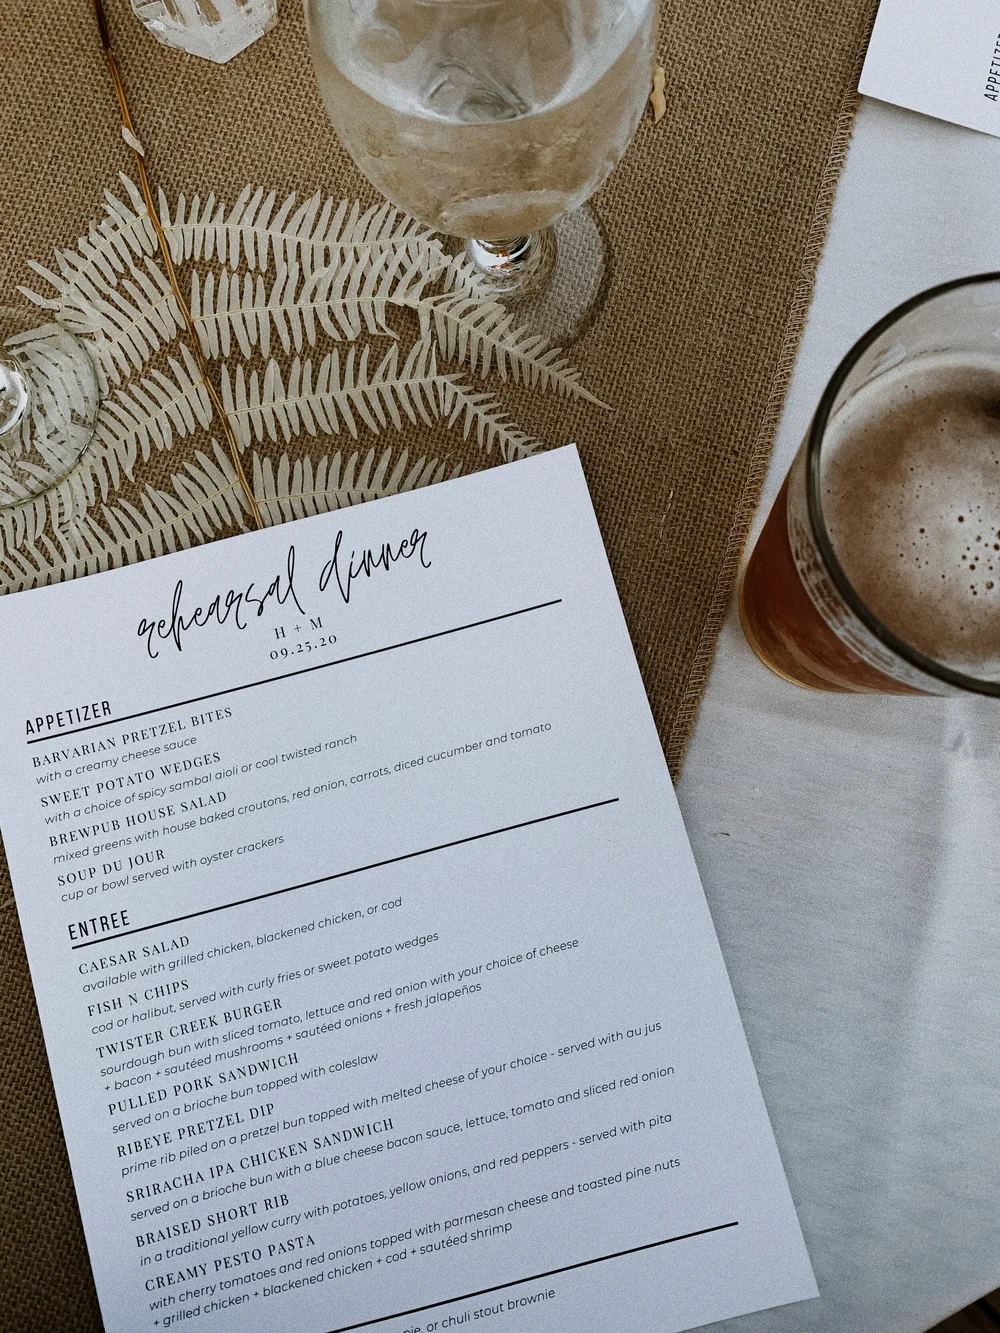 APPETIZER
rehearsal dinner
H + M
09.25.20
APPETIZER
BARVARIAN PRETZEL BITES
with a creamy cheese sauce
SWEET POTATO WEDGES
with a choice of spicy sambal aioli or cool twisted ranch
BREWPUB HOUSE SALAD
mixed greens with house baked croutons, red onion, carrots, diced cucumber and tomato
SOUP DU JOUR
cup or bowl served with oyster crackers
ENTREE
CAESAR SALAD
available with grilled chicken, blackened chicken, or cod
FISH N CHIPS
cod or halibut, served with curly fries or sweet potato wedges
TWISTER CREEK BURGER
sourdough bun with sliced tomato, lettuce and red onion with your choice of cheese
+ bacon + sautéed mushrooms + sautéed onions + fresh jalapeños
PULLED PORK SANDWICH
served on a brioche bun topped with coleslaw
RIBEYE PRETZEL DIP
prime rib piled on a pretzel bun topped with melted cheese of your choice - served with au jus
SRIRACHA IPA CHICKEN SANDWICH
served on a brioche bun with a blue cheese bacon sauce, lettuce, tomato and sliced red onion
BRAISED SHORT RIB
in a traditional yellow curry with potatoes, yellow onions, and red peppers - served with pita
CREAMY PESTO PASTA
with cherry tomatoes and red onions topped with parmesan cheese and toasted pine nuts
+ grilled chicken + blackened chicken + cod + sautéed shrimp
or chuli stout brownie